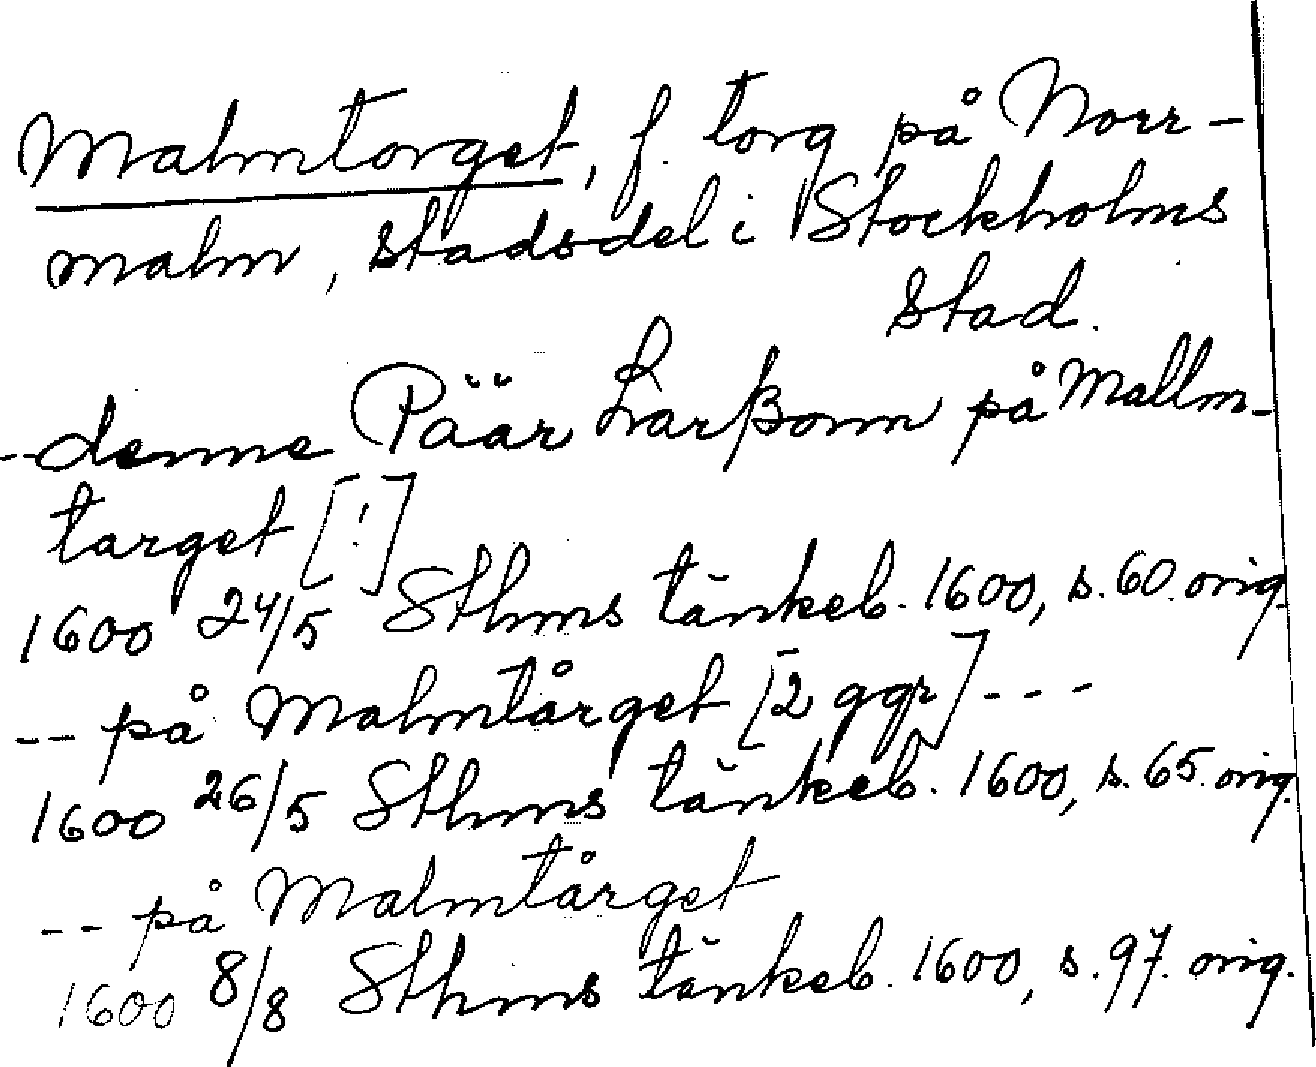 Malmtorget, f. torg på Norr-
malm, stadsdel i Stockholms
stad.
--denne Päär Larßonn på Mallm-
target [!]
1600 24/5 Sthms tänkeb. 1600, s. 60. orig.
-- på Malmtårget [2 ggr] ---
1600 26/5 Sthms tänkeb. 1600, s. 65. orig.
-- på Malmtårget
1600 8/8 Sthms tänkeb. 1600, s. 97. orig.